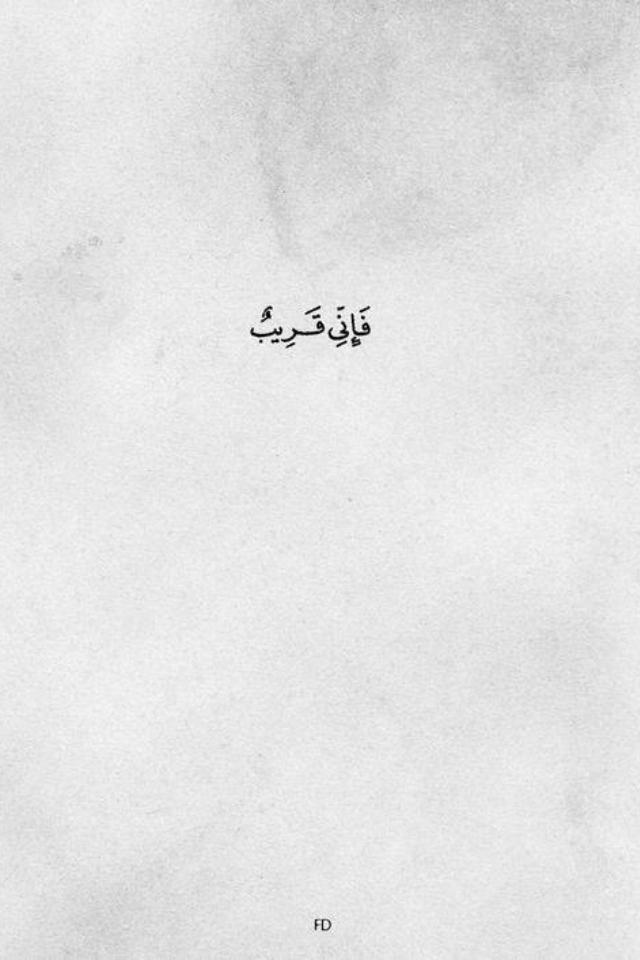 فَإِنِّي قَـرِيبٌ
FD